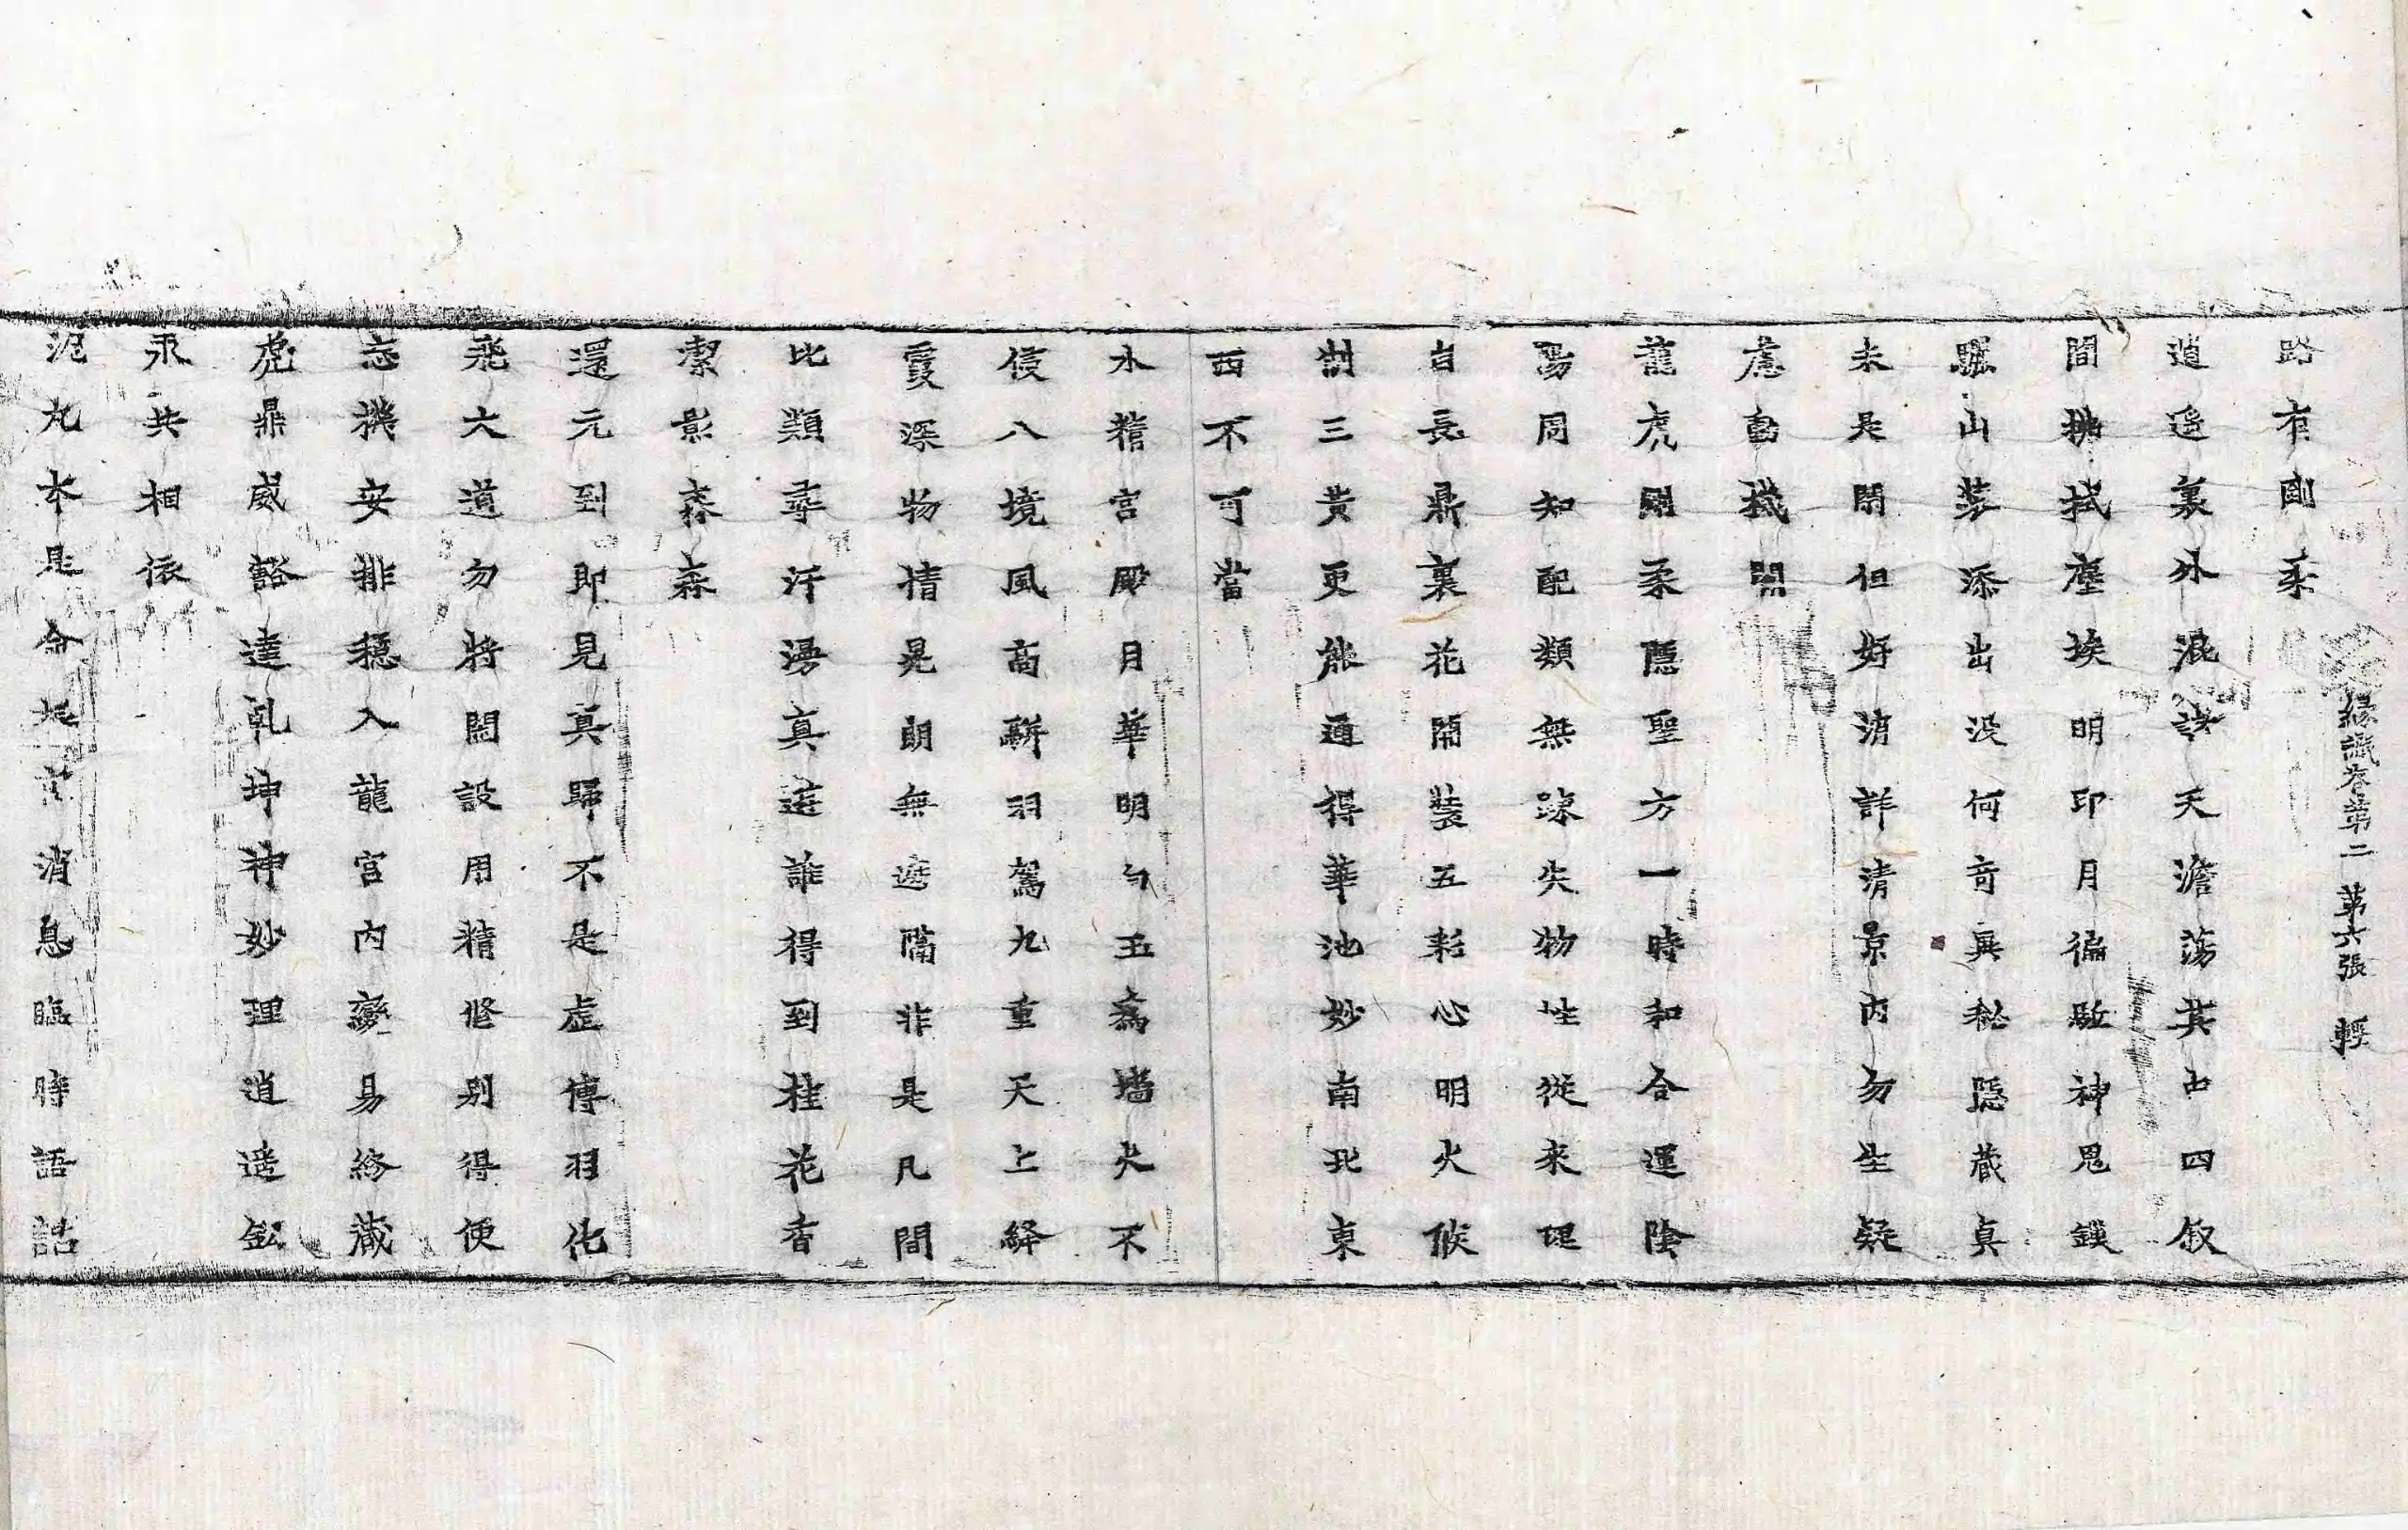 路有剛柔
緣識卷第二 第六張 輕
逍遙裏外混  天澹蕩其中四敘
間拂拭塵埃明印月徧歐神思鍈
驅山岑添出沒何奇異秘隱藏真
未是閑但好消詳清景內勿生疑
慮自機關
龍虎剛柔隱聖方一時和合運陰
陽同知配類無踈失物性從來理
自長鼎裏花開裝五彩心明火候
制三黃更能通得華池妙南北東
西不可當
水精宮殿月華明勻玉為墻火不
侵八境風高輧羽駕九重天上絳
霞深物情晃朗無遮隔非是凡間
比類尋汗湧真蓮誰得到桂花香
潔影森森
還元到即見真歸不是虛傳羽化
飛大道勿將閑設用精修別得便
忘機安排穩入龍宮內變易終藏
虎鼎威豁達乾坤神妙理逍遙鈆
汞共相依
泥丸本是命 消息臨時語話